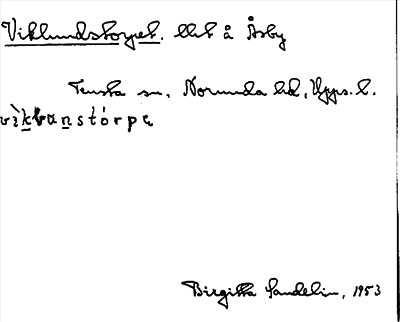 Viklundstorpet. llht å Åsby
Tensta sn, Norunda hd, Upps. l.
vìkbanstórpe
Birgitta Sandelin, 1953